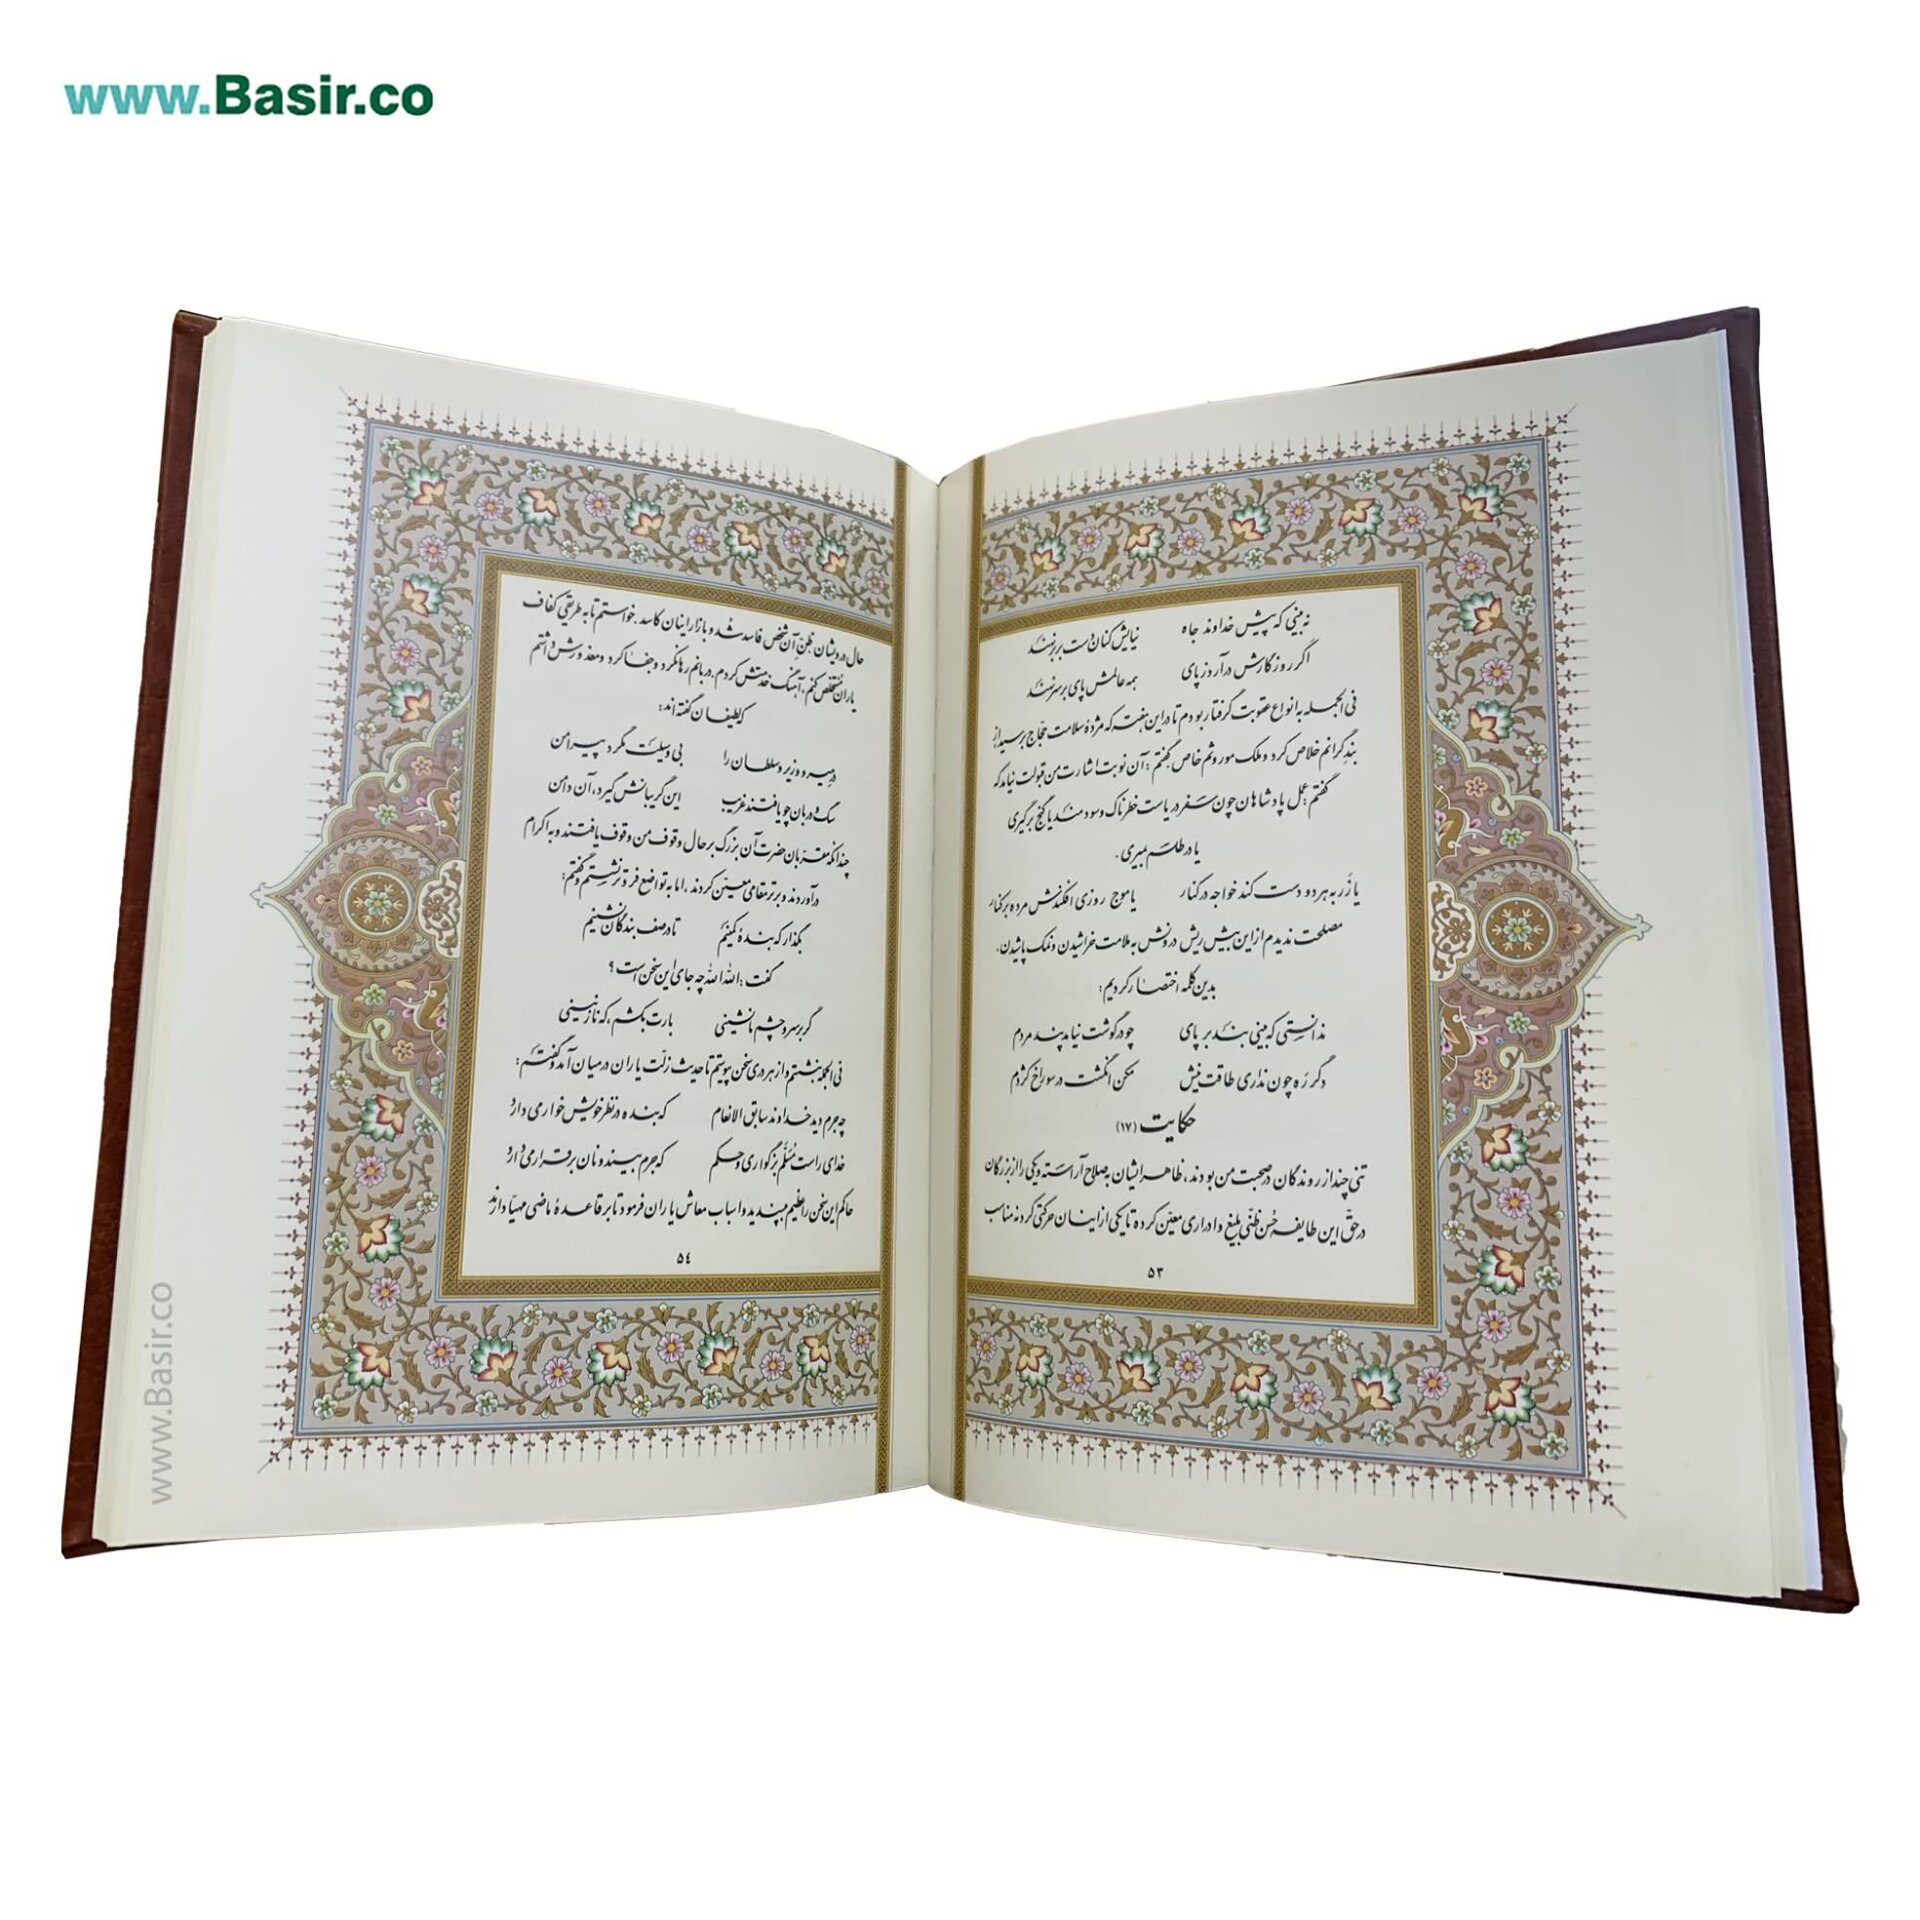 www.Basir.co
نه بینی که پیش خداوند جاه نیایش کنان دست بر بر نهند
اگر روزگارش درآرد ز پای همه عالمش پای بر سر نهند
فی الجمله به انواع عقوبت گرفتار بودم تا در این هفته که مژدهٔ سلامت حجّاج برسید، از
بند گرانم خلاص کرد و ملک موروثم خاص گفتم: آن نوبت اشارت من قبولت نیامد که
گفتم: عمل پادشاهان چون سفر دریاست خطرناک و سودمند یا گنج برگیری
یا در طلسم بمیری.
یا زر به هر دو دست کند خواجه در کنار یا موج روزی افکندش مرده بر کنار
مصلحت ندیدم از این بیش ریش درونش به ملامت خراشیدن و نمک پاشیدن.
بدین کلمه اختصار کردیم:
ندانستی که بینی بند بر پای چو در گوشت نیامد پند مردم
دگر ره چون نداری طاقت نیش مکن انگشت در سوراخ کژدم
حکایت (۱۷)
تنی چند از روندگان در صحبت من بودند، ظاهر ایشان به صلاح آراسته و یکی را از بزرگان
در حقّ این طایفه حُسن ظنّی بلیغ و ادراری معیّن کرده تا یکی از اینان حرکتی کرد نه مناسب
۵۳
حال درویشان ظنّ آن شخص فاسد شُد و بازار اینان کاسد. خواستم تا به طریقی کفاف
یاران مُستَخلص کنم، آهنگ خدمتش کردم. دربانم رها نکرد و جفا کرد و معذورش داشتم
که لطیفان گفته‌اند:
در میر و وزیر و سلطان را بی وسیلت مگرد پیرامن
سگ و دربان چو یافتند غریب این گریبانش گیرد، آن دامن
چندانکه مقرّبان حضرت آن بزرگ بر حال وقوف من وقوف یافتند و به اکرام
درآوردند و برتر مقامی معیّن کردند، اما به تواضع فروتر نشستم و گفتم:
بگذار که بندهٔ کمینم تا در صف بندگان نشینم
گفت: الله الله چه جای این سخن است؟
گر بر سر و چشم ما نشینی بارت بکشم، که نازنینی
فی الجمله بنشستم و از هر دری سخن پیوستم تا حدیث زلّت یاران در میان آمد و گفتم:
چه جرم دید خداوند سابق الانعام که بنده در نظر خویش خوار می دارد
خدای راست مُسَلّم بزگواری و حکم که جرم بیند و نان برقرار می دارد
حاکم این سخن را عظیم بپسندید و اسباب معاش یاران فرمود تا بر قاعدهٔ ماضی مهیّا دارند
۵٤
www.Basir.co